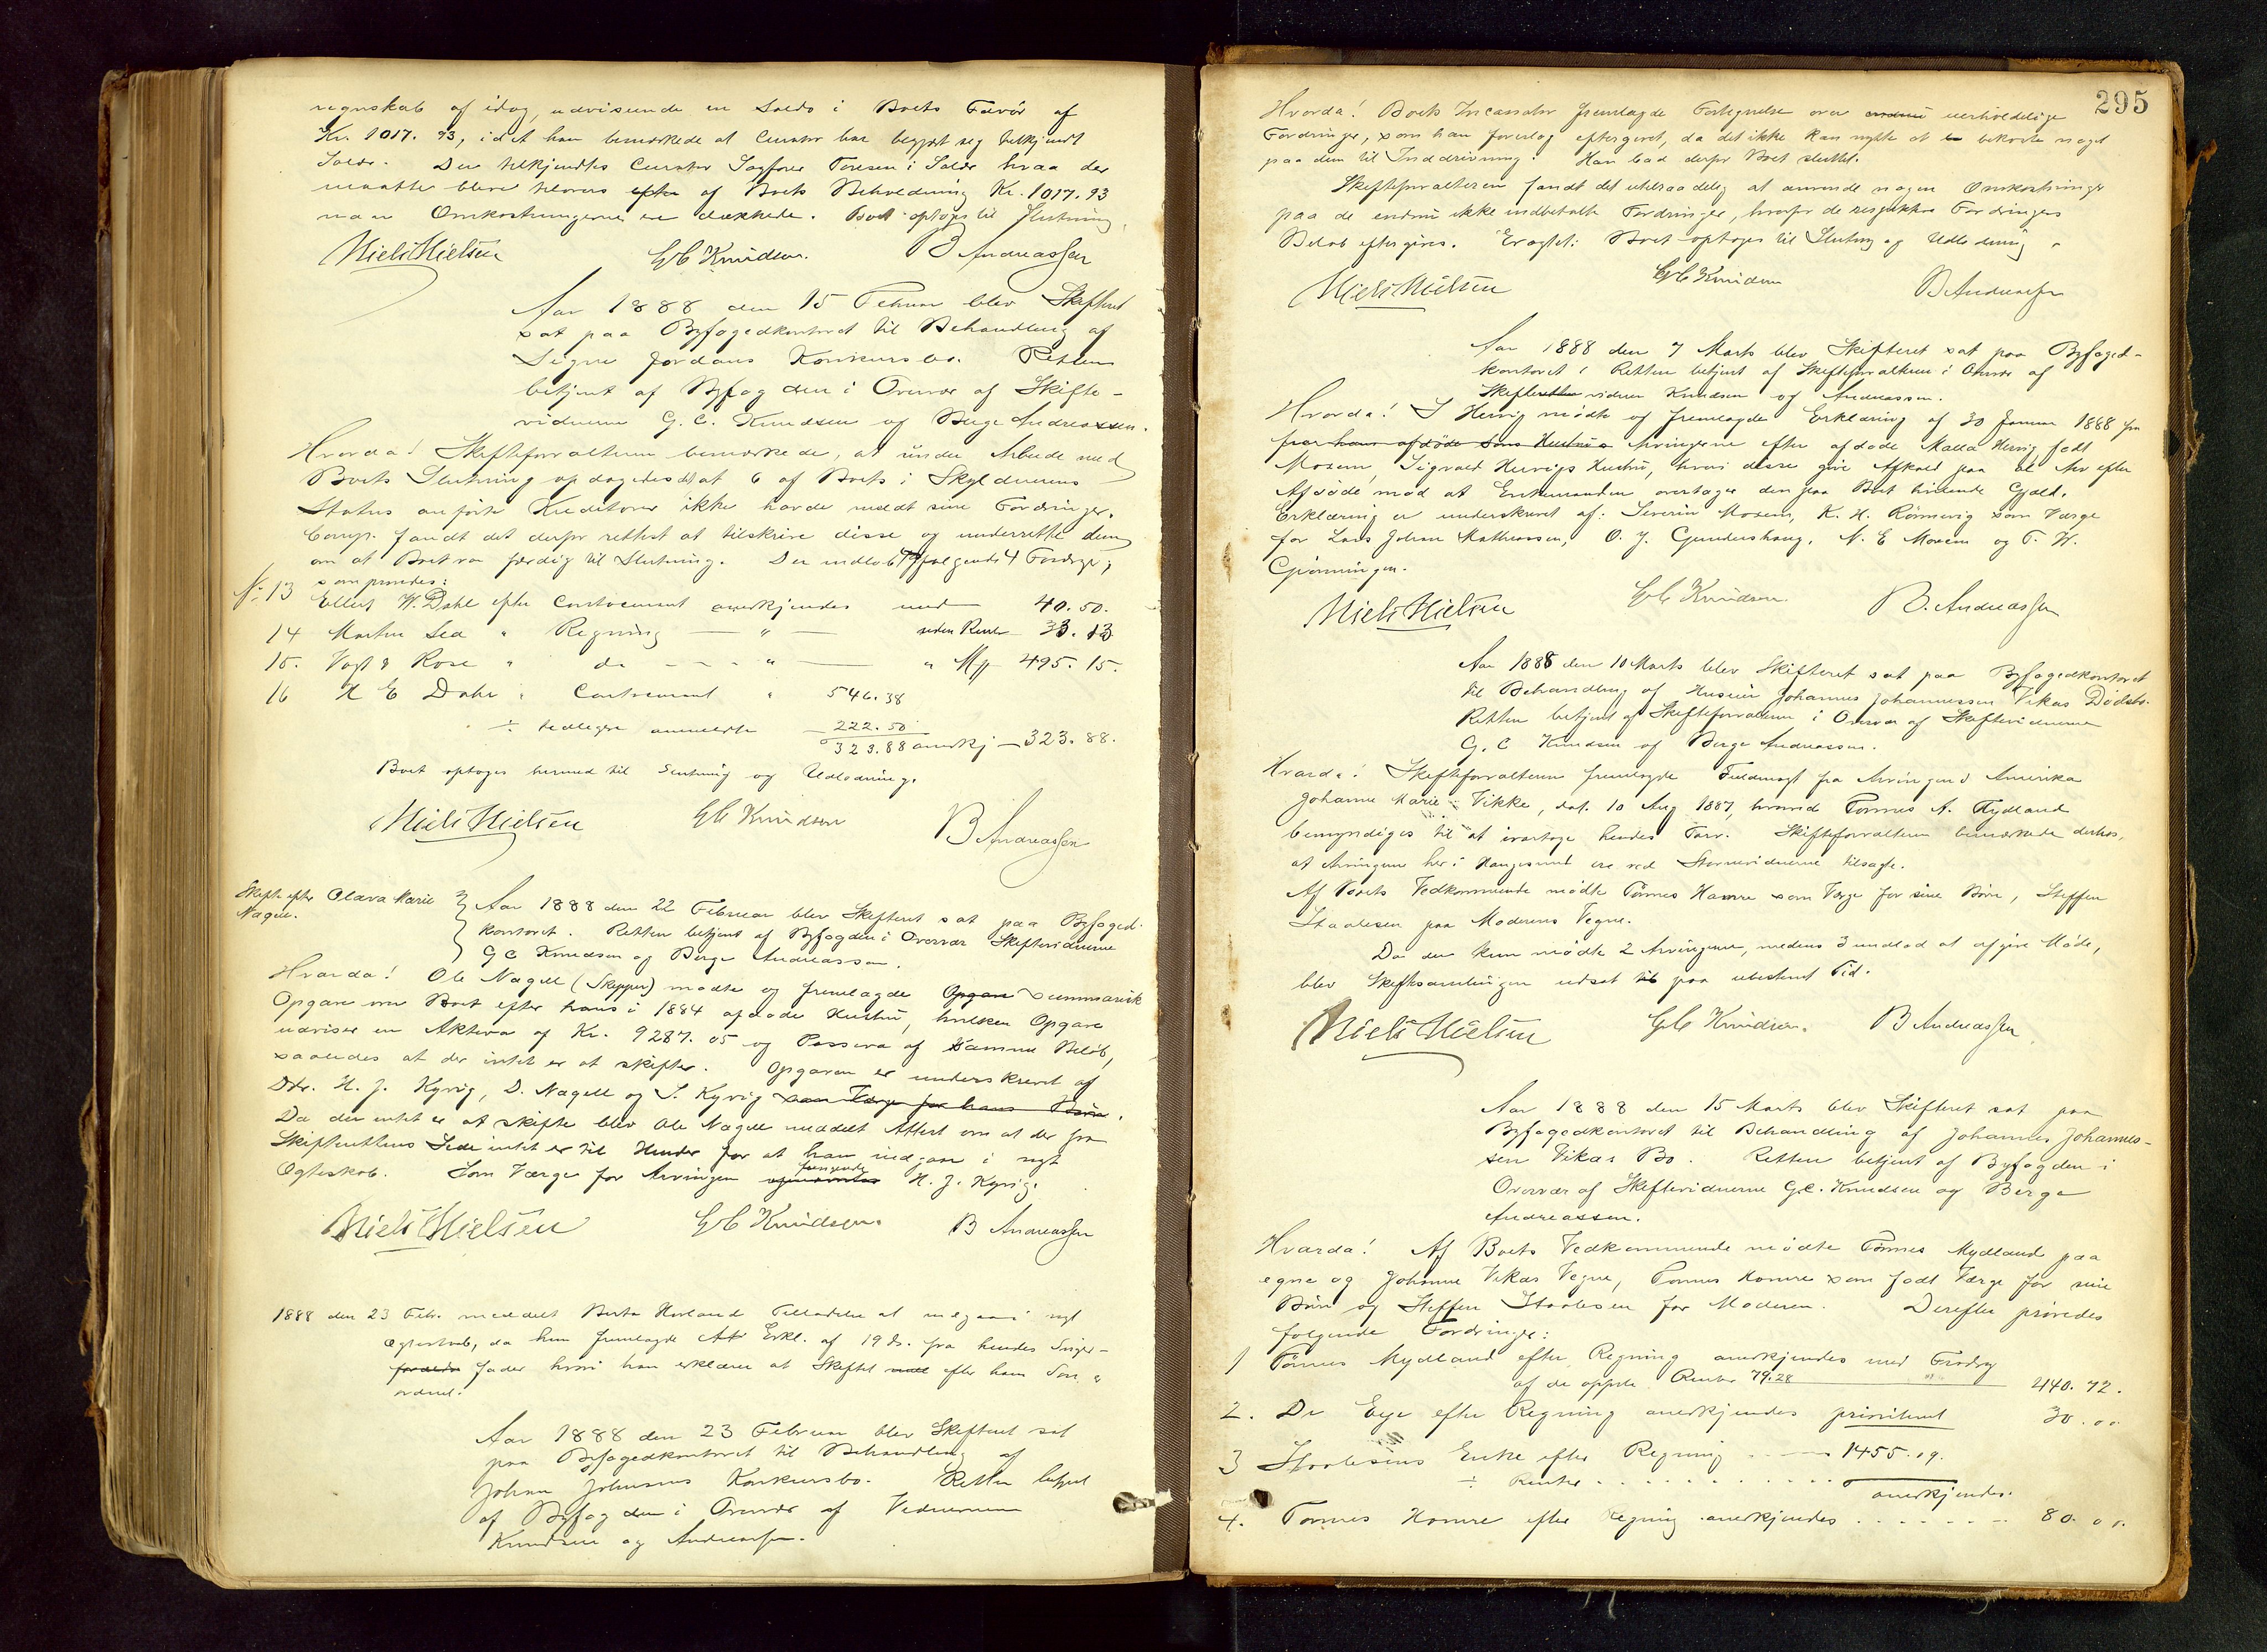 regnskab af idag, udvisende en Saldo i Boets Favör af
Kr. 1017. 93, idet han bemærkede at Curator har begjært sig tilkjendt
Saldo. Der tilkjendtes Curator Sagfører i Salær hvad der
maatte blive tilovers efter af Boets Beholdning Kr. 1017.93
naar Omkostningerne ere dækkede. Boet optoges til Slutning.
Niels Nielsen GC Knudsen. B Andreassen
Aar 1888 den 15 Februar blev Skifteret
sat paa Byfogedkontoret til Behandling af
Signe Jordans Konkursbo. Retten
betjent af Byfogden i Overvær af Skifte-
vidnerne G. C. Knudsen og Berge Andreassen.
Hvorda! Skifteforvalteren bemærkede, at under Arbeide med
Boets Slutning opdagedes det at 6 af Boets i Skyldnerens
Status anførte Kreditorer ikke havde meldt sine Fordringer.
Comp. fandt det derfor rettest at tilskrive disse og underrette dem
om at Boet var færdig til Slutning. Der indløb følgende 4 Fordrger,
som prøvedes:
No 13 Ellert W. Dahl efter Contocurant anerkjendes med 40.50.
14 Martin Lea " Regning — " — uden Renter 33.13
15. Vogt & Rose " do — " — " 495.15.
16 H E Dahl " Contocurant " 546.38
÷ tidligere anmeldte 222.50
323.88 anerkj — 323.88.
Boet optoges hermed til Slutning og Udlodning.
Niels Nielsen GC Knudsen B Andreassen
Skifte efter Olava Marie
Nagell.
Aar 1888 den 22 Februar blev Skifteret sat paa Byfoged-
kontoret. Retten betjent af Byfogden i Overvær Skiftevidnerne
G C Knudsen og Berge Andreassen.
Hvorda! Ole Nagell (Skipper) mødte og fremlagde Opgave summarisk
Opgave over Boet efter hans i 1884 afdøde Hustru, hvilken Opgave
udviser en Aktiva af Kr. 9287.05 og Passiva af samme Beløb,
saaledes at der intet er at skifte. Opgaven er underskrevet af
H. J. Kyvig, D. Nagell og S. Kyvig som Værge for hans Børn.
Da der intet er at skifte blev Ole Nagell meddelt Attest om at der fra
Skifterettens Side intet er til Hinder for at han indgaar i nyt
Ægteskab. Som Værge for Arvingen opnævntes fungerede H. J. Kyvig.
Niels Nielsen GC Knudsen. B Andreassen
1888 den 23 Febr. meddelt Berta Hovland Tilladelse at indgaa i nyt
Ægteskab, da hun fremlagde Erkl. af 19 ds. fra hendes Sviger-
fader hvori han erklærer at Skiftet efter hans Søn er
ordnet.
Aar 1888 den 23 Februar blev Skifteret sat
paa Byfogedkontoret til Behandling af
Johan Johnsens Konkursbo. Retten betjent
af Byfogden i Overvær af Vidnerne
Knudsen og Andreassen.
295
Hvorda! Boets Incassator fremlagde Fortegnelse over endnu uerholdelige
Fordringer, som han foreslog eftergivet, da det ikke kan nytte at bekoste noget
paa dem til Inddrivning. Han bad derfor Boet sluttet.
Skifteforvalteren fandt det utilraadelig at anvende nogen Omkostninger
paa de endnu ikke indbetalte Fordringer, hvorfor de respektive Fordringers
Beløb eftergives. Eragtet: Boet optoges til Slutning og Udlodning.
Niels Nielsen GC Knudsen B Andreassen
Aar 1888 den 7 Marts blev Skifteret sat paa Byfoged-
kontoret, Retten betjent af Skifteforvalteren i Overvær af
Skiftevidnerne Knudsen og Andreassen.
Hvorda! S Hervig mødte og fremlagde Erklæring af 30 Januar 1888 fra
fra hans afdøde Hustrus Arvingerne efter afdøde Malla Hervig født
Mosem, Sigvald Hervigs Hustru, hvori disse give Afkald paa al Arv efter
Afdøde mod at Enkemanden overtager den paa Boet hvilende Gjæld.
Erklæring er underskrevet af: Severin Mosem, K. H. Rönnevig som Værge
for Lars Johan Mathiassen, O. J. Gundershaug, N. E Mosem og T. W.
Grönningen.
Niels Nielsen GC Knudsen. B. Andreassen
Aar 1888 den 10 Marts blev Skifteret sat paa Byfogedkontoret
til Behandling af Huseier Johannes Johannessen Vikas Dødsbo.
Retten betjent af Skifteforvalteren i Overvær af Skiftevidnerne
G. C Knudsen og Berge Andreassen.
Hvorda! Skifteforvalteren fremlagde Fuldmagt fra Arvingen i Amerika
Johanne Marie Vikke, dat. 10 Aug 1887, hvorved Tønnes A. Mydland
bemyndiges til at ivaretage hendes Tarv. Skifteforvalteren bemærkede derhos,
at Arvingerne her i Haugesund ere ved Stævnevidnerne tilsagte.
Af Boets Vedkommende mødte Tønnes Hamre som Værge for sine Børn, Steffen
Staalesen paa Moderens Vegne.
Da der kun mødte 2 Arvingerne, medens 3 undlod at afgive Møde,
blev Skiftesamlingen udsat paa ubestemt Tid.
Niels Nielsen GC Knudsen. B Andreassen
Aar 1888 den 15 Marts blev Skifteret sat paa
Byfogedkontoret til Behandling af Johannes Johannes-
sen Vikas Bo. Retten betjent af Byfogden i
Overvær af Skiftevidnerne G.C. Knudsen og Berge
Andreassen.
Hvorda! Af Boets Vedkommende mødte Tønnes Mydland paa
egne og Johanne Vikas Vegne, Tønnes Hamre som født Værge for sine
Børn og Steffen Staalesen for Moderen. Derefter prøvedes
følgende Fordringer:
1 Tønnes Mydland efter Regning anerkjendes med Fradrag
af de opførte Renter 79.28 240.72.
2. Dr Eye efter Regning anerkjendes prioriteret 30.00
3 Staalesens Enke efter Regning 1455.19.
÷ Renter
anerkjendes.
4. Tønnes Hamre efter Regning anerkjendes 80.00.